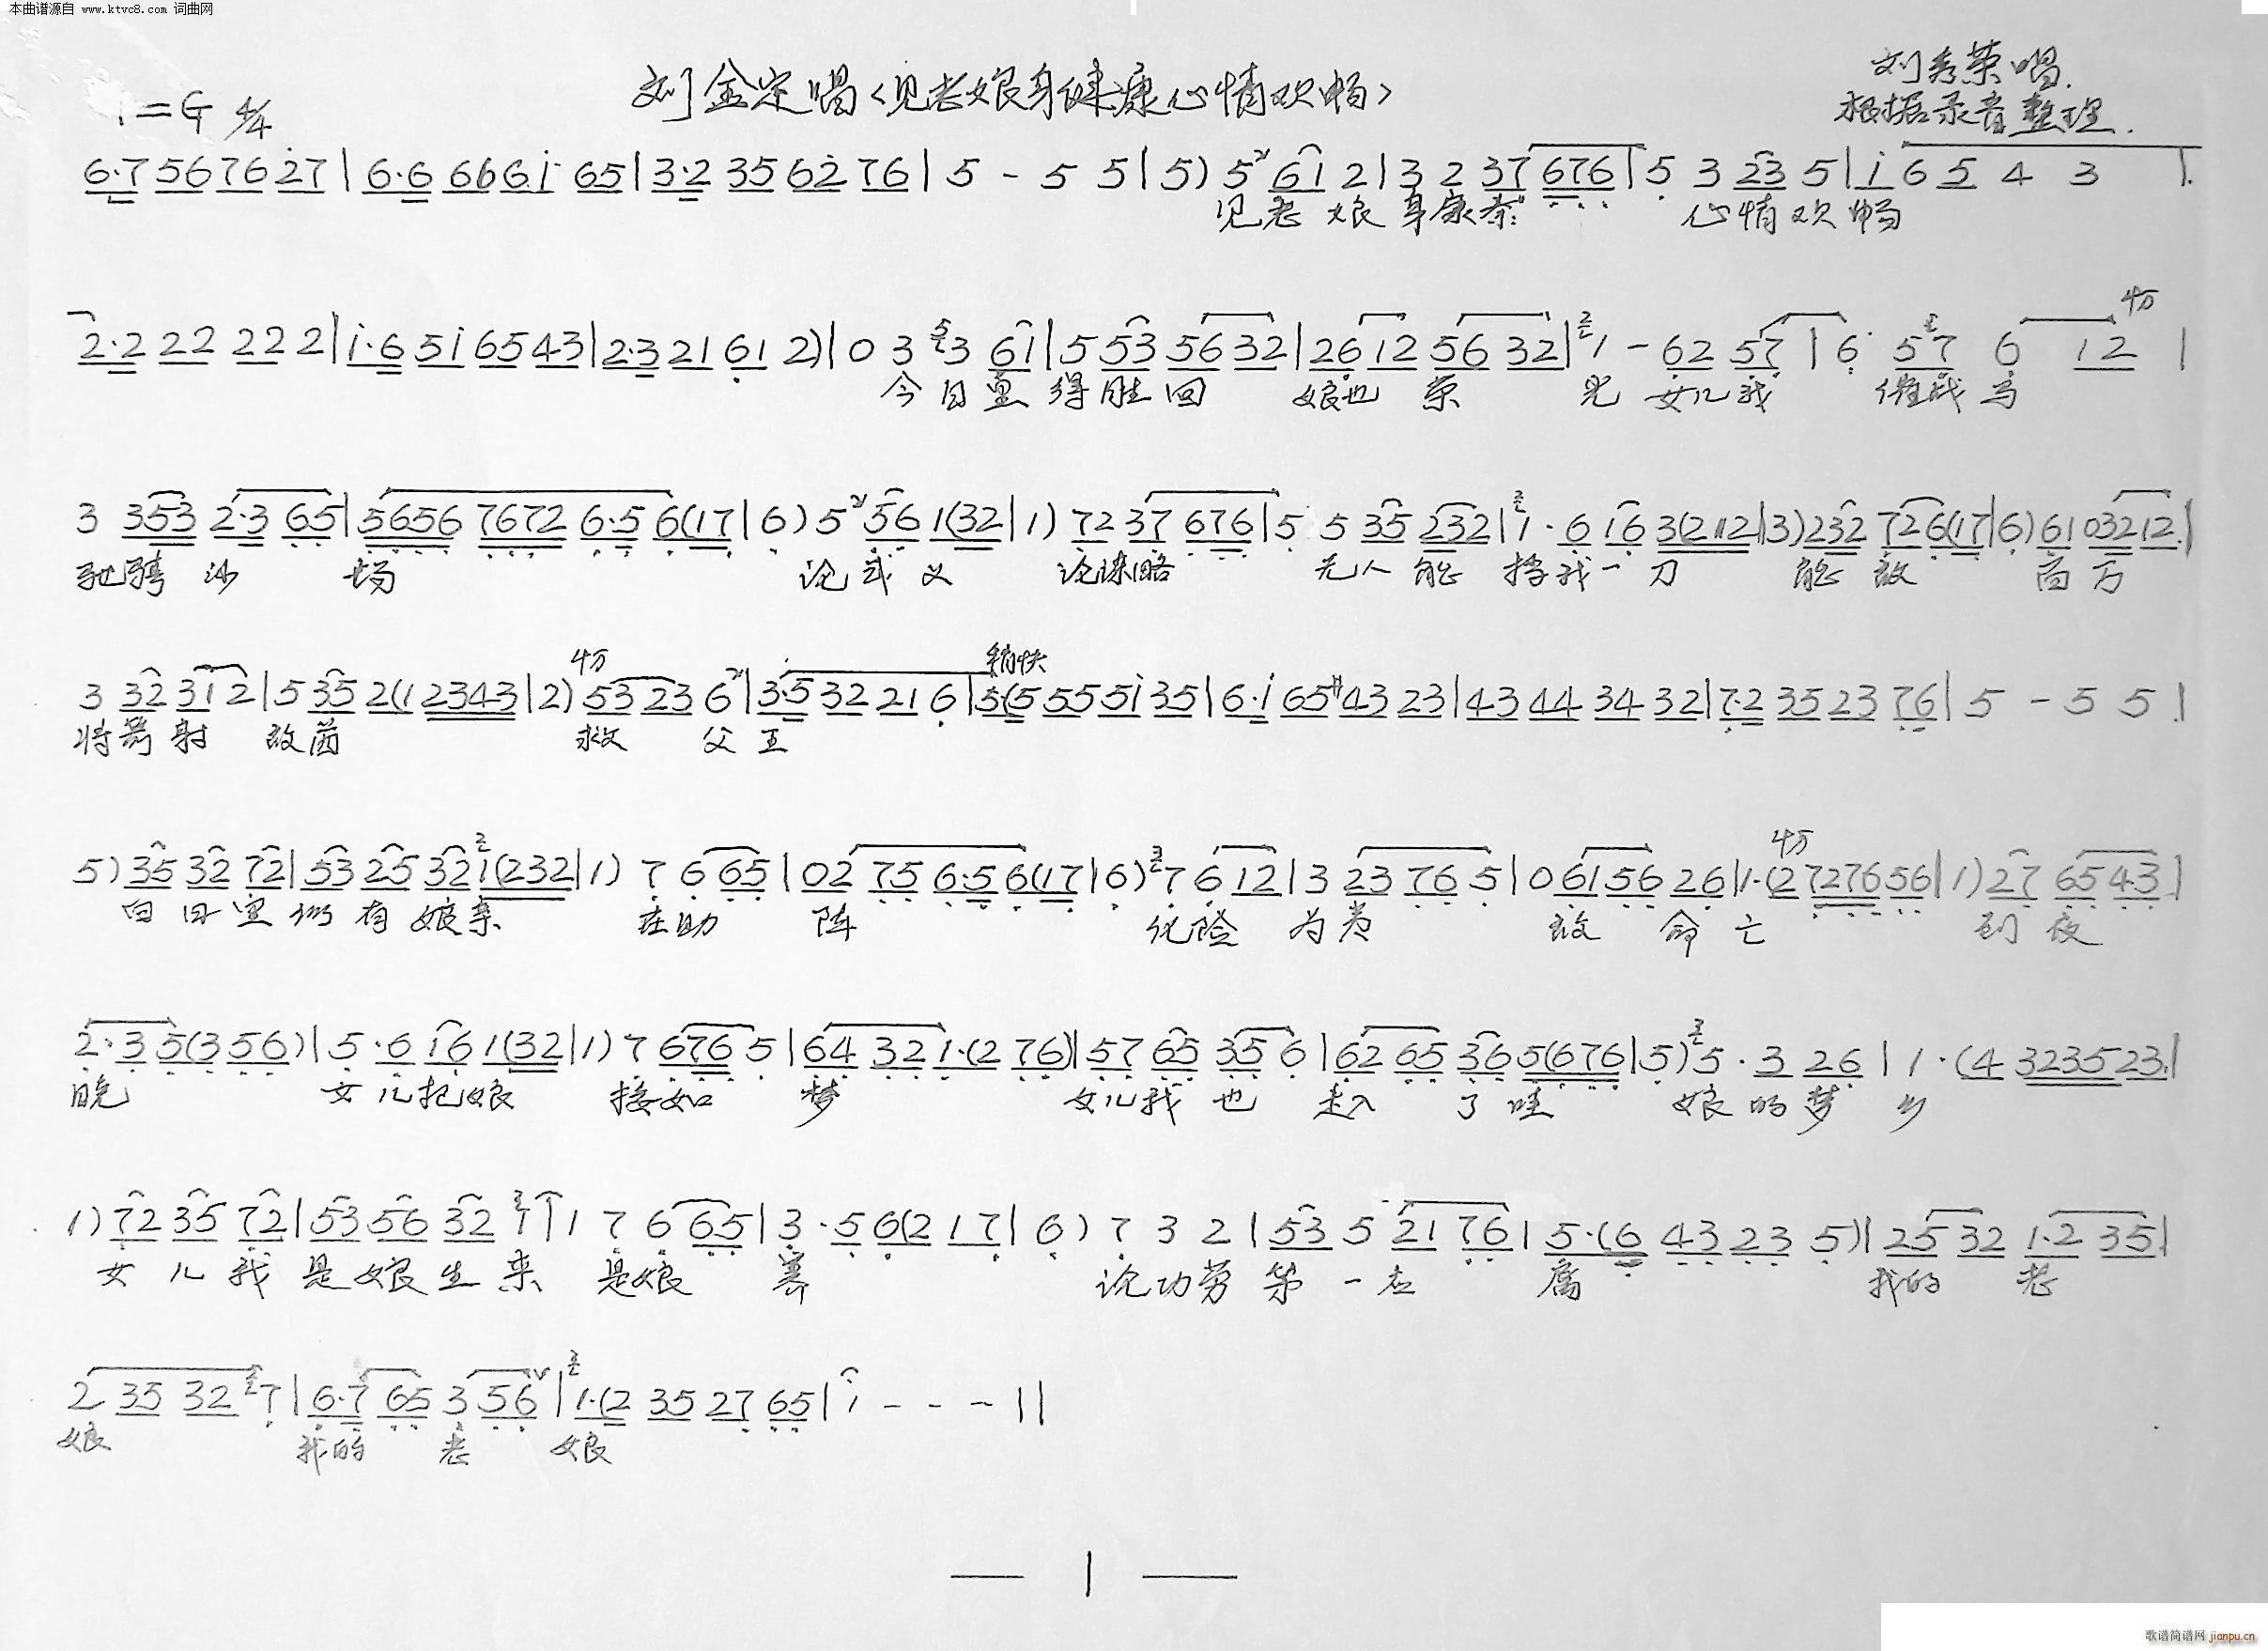 本曲谱源自 www.ktvc8.com 词曲网
刘金定唱<见老娘身健康心情欢畅>
刘秀荣唱.
根据录音整理.
1=G 4/4
6·7 56 76 27 | 6·6 666i· 65 | 3·2 35 62 76 | 5 - 5 5 | 5) 5 6i 2 | 3 2 37 676 | 5 3 23 5 | i 6 5 4 3 |
见老娘身康泰 心情欢畅
2·2 22 22 2 | i·6 5i 65 43 | 2·3 21 61 2) | 0 3 3 6i | 5 53 56 32 | 26 12 56 32 | 1 - 62 57 | 6· 57 6 12 |
今日里得胜回 娘也荣 光 女儿我 催战马
3 353 2·3 65 | 5656 7672 6·5 6(17 | 6) 5 56 1(32 | 1) 72 37 676 | 5 5 35 232 | 1· 6 16 3(212 | 3) 232 726(17 | 6) 61 03212 |
驰骋沙 场 论武义 论谋略 无人能 挡我一刀 能敌 万
3 32 31 2 | 5 35 2(1 2343 | 2) 53 23 6 | 3·5 32 21 6 | 5(5 55 5i 35 | 6·i 65 #43 23 | 43 44 34 32 | 7·2 35 23 76 | 5 - 5 5 |
稍快
将箭射 救 父王
5) 35 32 72 | 53 25 32 1(232 | 1) 7 6 65 | 02 75 6·5 6(17 | 6) 7 6 12 | 3 23 76 5 | 0 6156 26 | 1·(2 7276 56 | 1) 27 65 43 |
白日里 有娘亲 在助 阵 化险为 敌 命亡 到夜
2·3 5(3 56) | 5·6 16 1(32 | 1) 7 676 5 | 64 32 1·(2 76) | 57 65 35 6 | 62 65 36 5(676 | 5) 5·3 26 | 1·(4 3235 23 |
晚 女儿把娘 接如 梦 女儿我也 走入 了哇 娘的梦乡
1) 72 35 72 | 53 56 32 1 | 1 7 6 65 | 3·5 6(2 17 | 6) 7 3 2 | 53 5 21 76 | 5·(6 43 23 5) | 25 32 1·2 35 |
女儿我是娘生来 是娘 养 论功劳第一 我的 老
2 35 32 7 | 6·7 65 3 56 | 1·(2 35 27 65 | i - - - ||
娘 我的 老 娘
— 1 —
歌谱简谱网 jianpu.cn